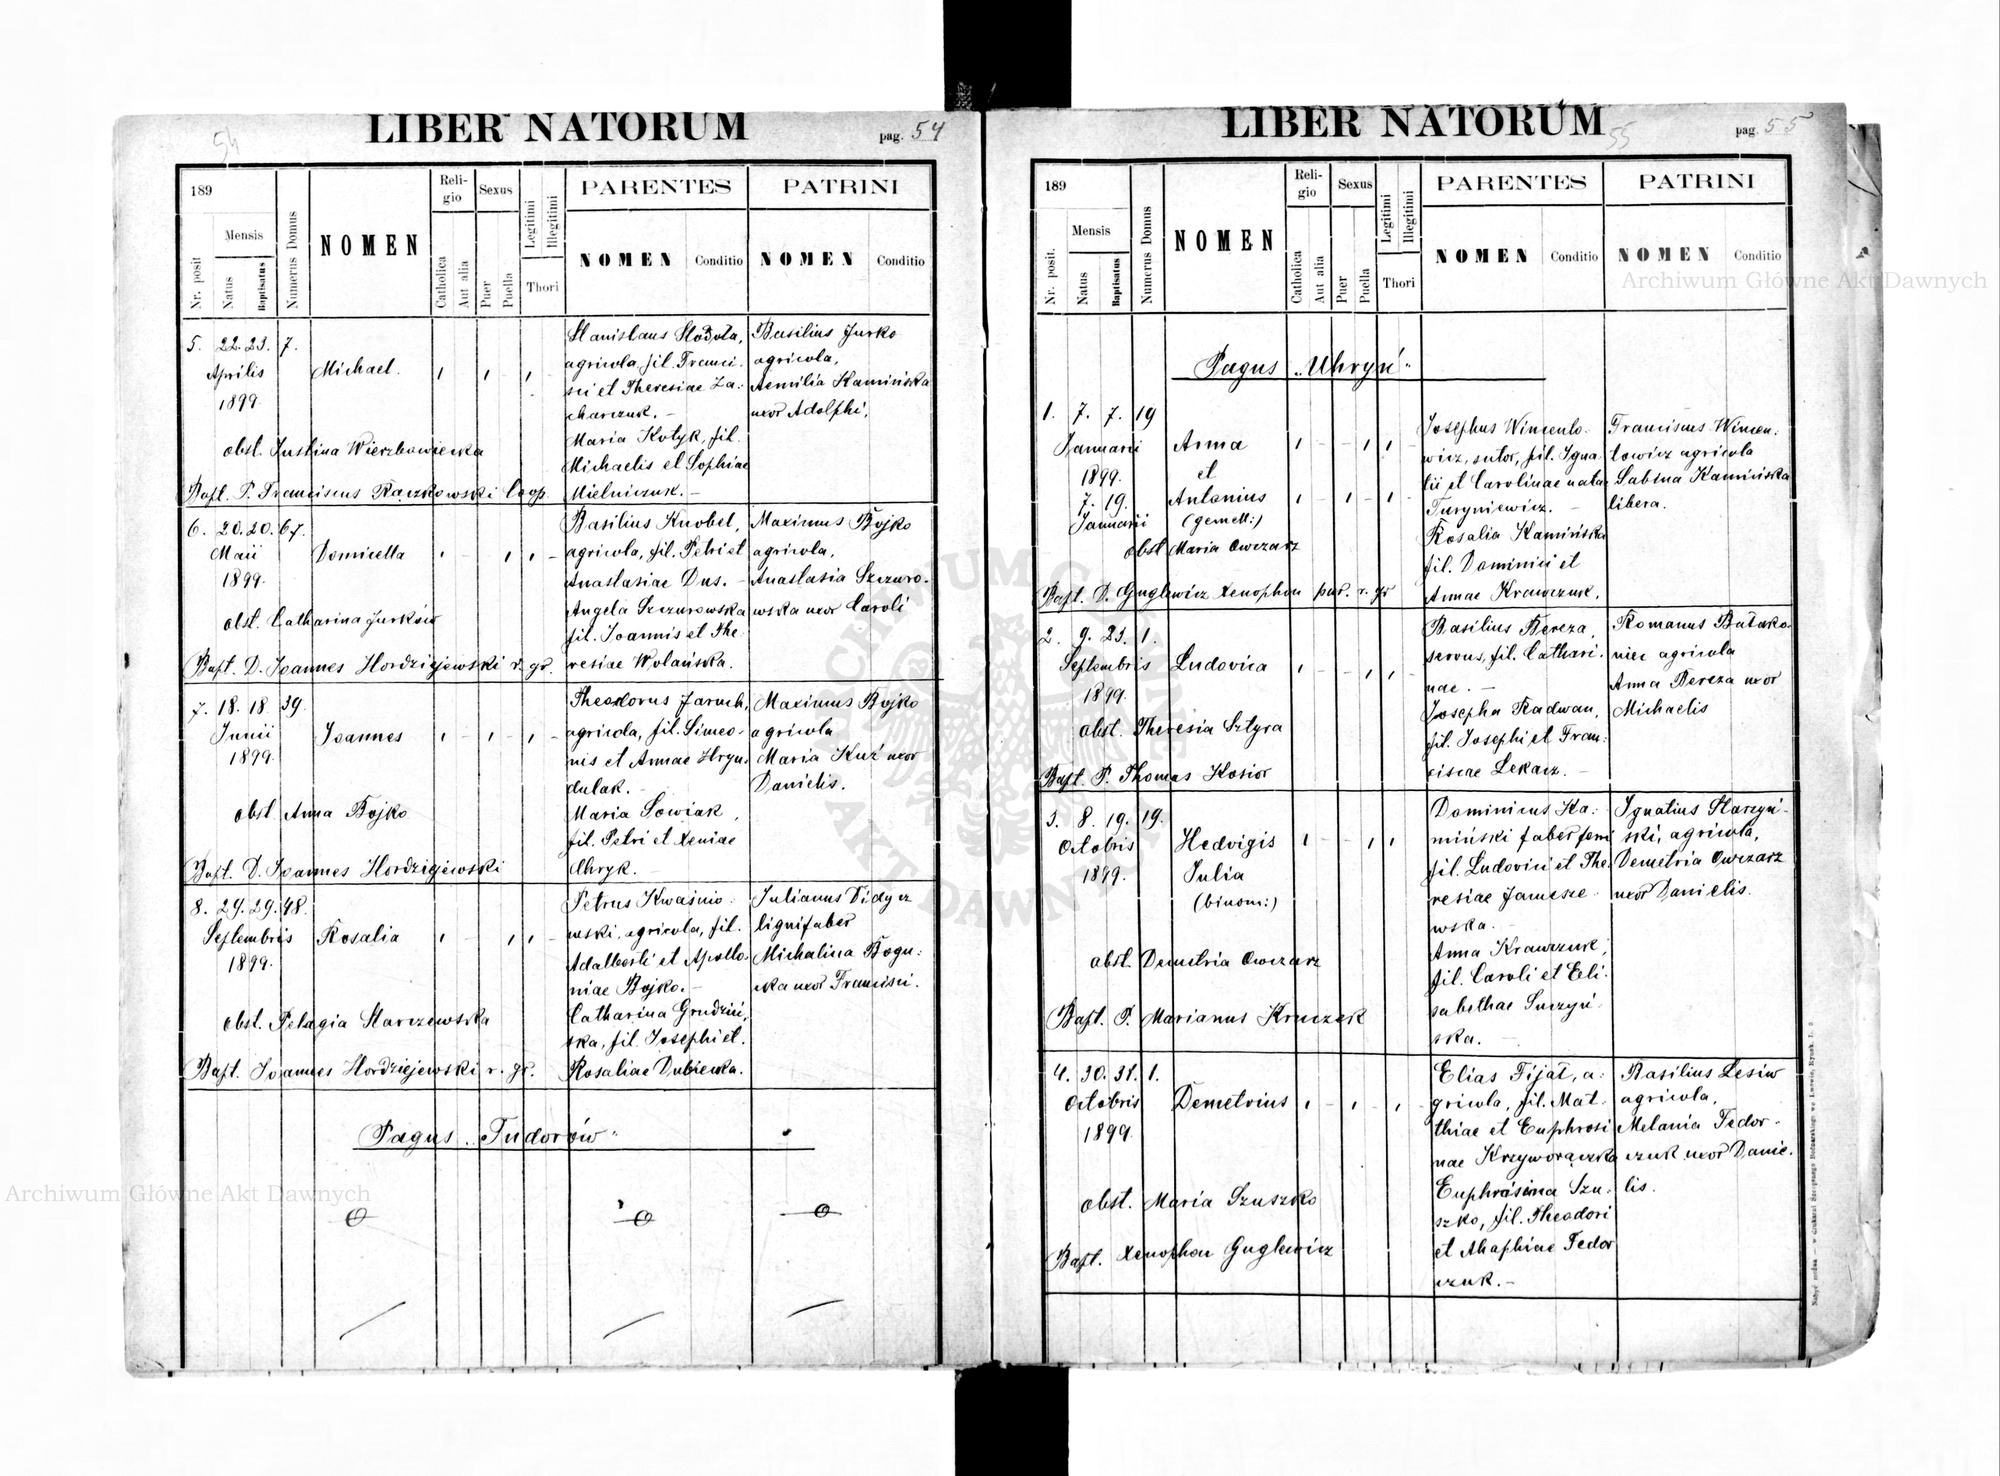 LIBER NATORUM
pag. 54
54
189
Nr. posit
Mensis
Natus
Baptisatus
Numerus Domus
NOMEN
Religio
Catholica
Aut alia
Sexus
Puer
Puella
Legitimi
Illegitimi
Thori
PARENTES
NOMEN
Conditio
PATRINI
NOMEN
Conditio
5. 22. 23. 7.
Aprilis
1899.
Michael.
Stanislaus Słodoła,
agricola, fil. Franci-
sci et Theresiae Za:
charczuk. –
Maria Kotyk, fil.
Michaelis et Sophiae
Mielniczuk. –
Basilius Jurko
agricola,
Aemilia Kamińska
uxor Adolphi.
obst. Justina Wierzbowiecka
Bapt. P. Franciscus Raczkowski Coop.
6. 20. 20. 67.
Maii
1899.
Domicella
Basilius Knobel,
agricola, fil. Petri et
Anastasiae Dus. –
Angela Szczurowska
fil. Joannis et The-
resiae Wolańska.
Maximus Bojko
agricola,
Anastasia Szczuro-
wska uxor Caroli
obst. Catharina Jurków
Bapt. D. Joannes Hordziejewski r. gr.
7. 18. 18. 39.
Junii
1899.
Joannes
Theodorus Jaruch,
agricola, fil. Simeo-
nis et Annae Hryn-
dulak. –
Maria Sowiak,
fil. Petri et Xeniae
Chryk.
Maximus Bojko
agricola
Maria Kuź uxor
Danielis.
obst. Anna Bojko
Bapt. D. Joannes Hordziejewski
8. 29. 29. 48.
Septembris
1899.
Rosalia
Petrus Kwaśnio-
wski, agricola, fil.
Adalberti et Apollo-
niae Bojko. –
Catharina Grudziń-
ska, fil. Josephi et
Rosaliae Dubiecka.
Julianus Didycz
lignifaber
Michalina Bogu-
cka uxor Francisci.
obst. Pelagia Starczewska
Bapt. Joannes Hordziejewski r. gr.
Pagus „Tudorów"
LIBER NATORUM
pag. 55
55
189
Nr. posit.
Mensis
Natus
Baptisatus
Numerus Domus
NOMEN
Religio
Catholica
Aut alia
Sexus
Puer
Puella
Legitimi
Illegitimi
Thori
PARENTES
NOMEN
Conditio
PATRINI
NOMEN
Conditio
Pagus „Uhryń"
1. 7. 7. 19
Januarii
1899.
7. 19.
Januarii
Anna
et
Antonius
(gemell:)
Josephus Wincento-
wicz, sutor, fil. Igna-
tii et Carolinae nata
Turyniewicz. –
Rosalia Kamińska
fil. Dominici et
Annae Krawczuk.
Franciscus Wincen-
towicz agricola
Sabina Kamińska
libera.
obst Maria Owczarz
Bapt. D. Guglewicz Xenophon par. r. gr
2. 9. 23. 1.
Septembris
1899.
Ludovica
Basilius Bereza,
servus, fil. Cathari-
nae. –
Josepha Radwan,
fil. Josephi et Fran:
ciscae Lekarz. –
Romanus Batako-
niec agricola
Anna Bereza uxor
Michaelis
obst. Theresia Sztyra
Bapt. P. Thomas Kosior
3. 8. 19. 19.
Octobris
1899.
Hedvigis
Julia
(binom:)
Dominicus Ka:
miński faber ferri
fil. Ludovici et The-
resiae Janisze-
wska. –
Anna Krawczuk,
fil. Caroli et Eli-
sabethae Suczyń-
ska. –
Ignatius Starzyń-
ski, agricola,
Demetria Owczarz
uxor Danielis.
obst. Demetria Owczarz
Bapt. P. Marianus Kruczek
4. 30. 31. 1.
Octobris
1899.
Demetrius
Elias Fijał, a:
gricola, fil. Mat-
thiae et Euphrosi
nae Krzyworączka
Euphrosina Szu-
szko, fil. Theodori
et Ahaphiae Fedor
czuk. –
Basilius Lesiw
agricola,
Melania Fedor-
czuk uxor Danie-
lis.
obst. Maria Szuszko
Bapt. Xenophon Guglewicz
Archiwum Główne Akt Dawnych
Archiwum Główne Akt Dawnych
ARCHIWUM GŁÓWNE AKT DAWNYCH